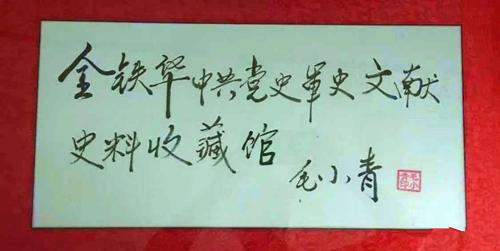 金铁华中共党史军史文献
史料收藏馆
毛小青